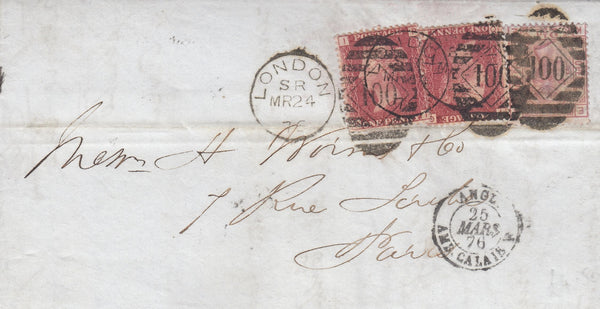 LONDON
SR
MR24
76
100
100
100
ONE PENNY
Messrs H Worms & Co
7 Rue Scribe
Paris
ANGL
25
MARS
76
AMB. CALAIS